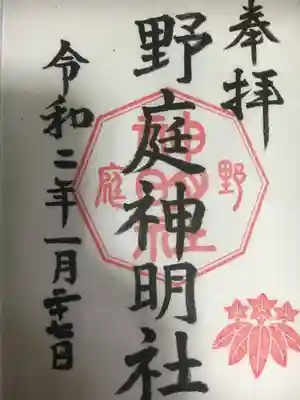 奉拝
野庭神明社
野庭
神明社
令和二年一月二十七日